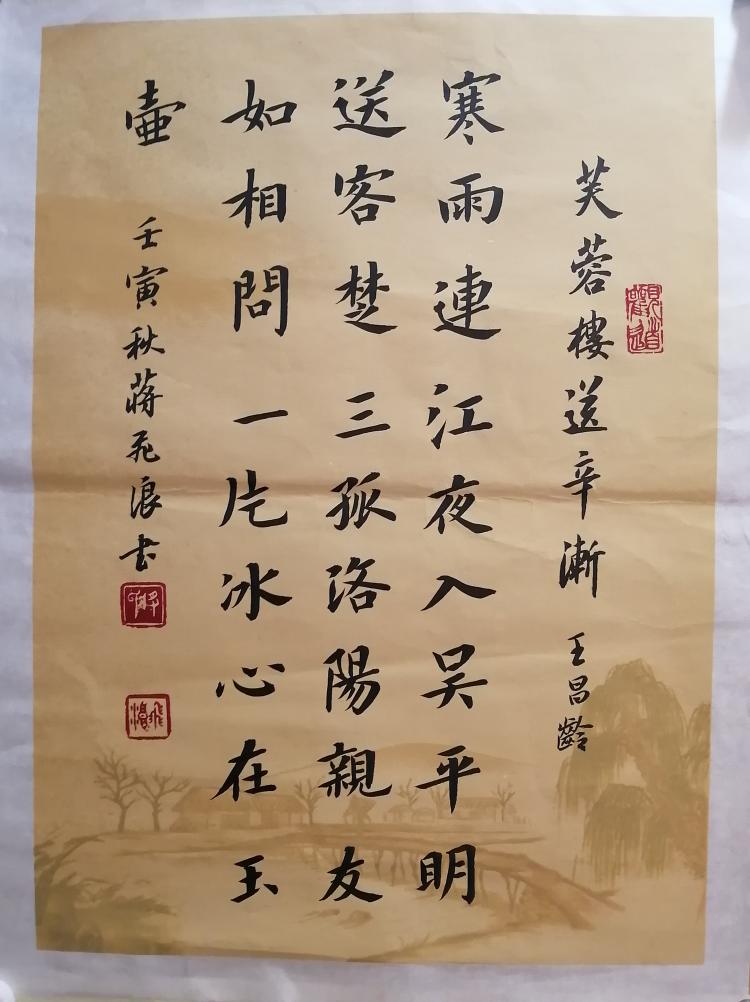 芙蓉樓送辛漸 王昌齡
寒雨連江夜入吴平明
送客楚三孤洛陽親友
如相問一片冰心在玉
壺
壬寅秋蔣飛浪书